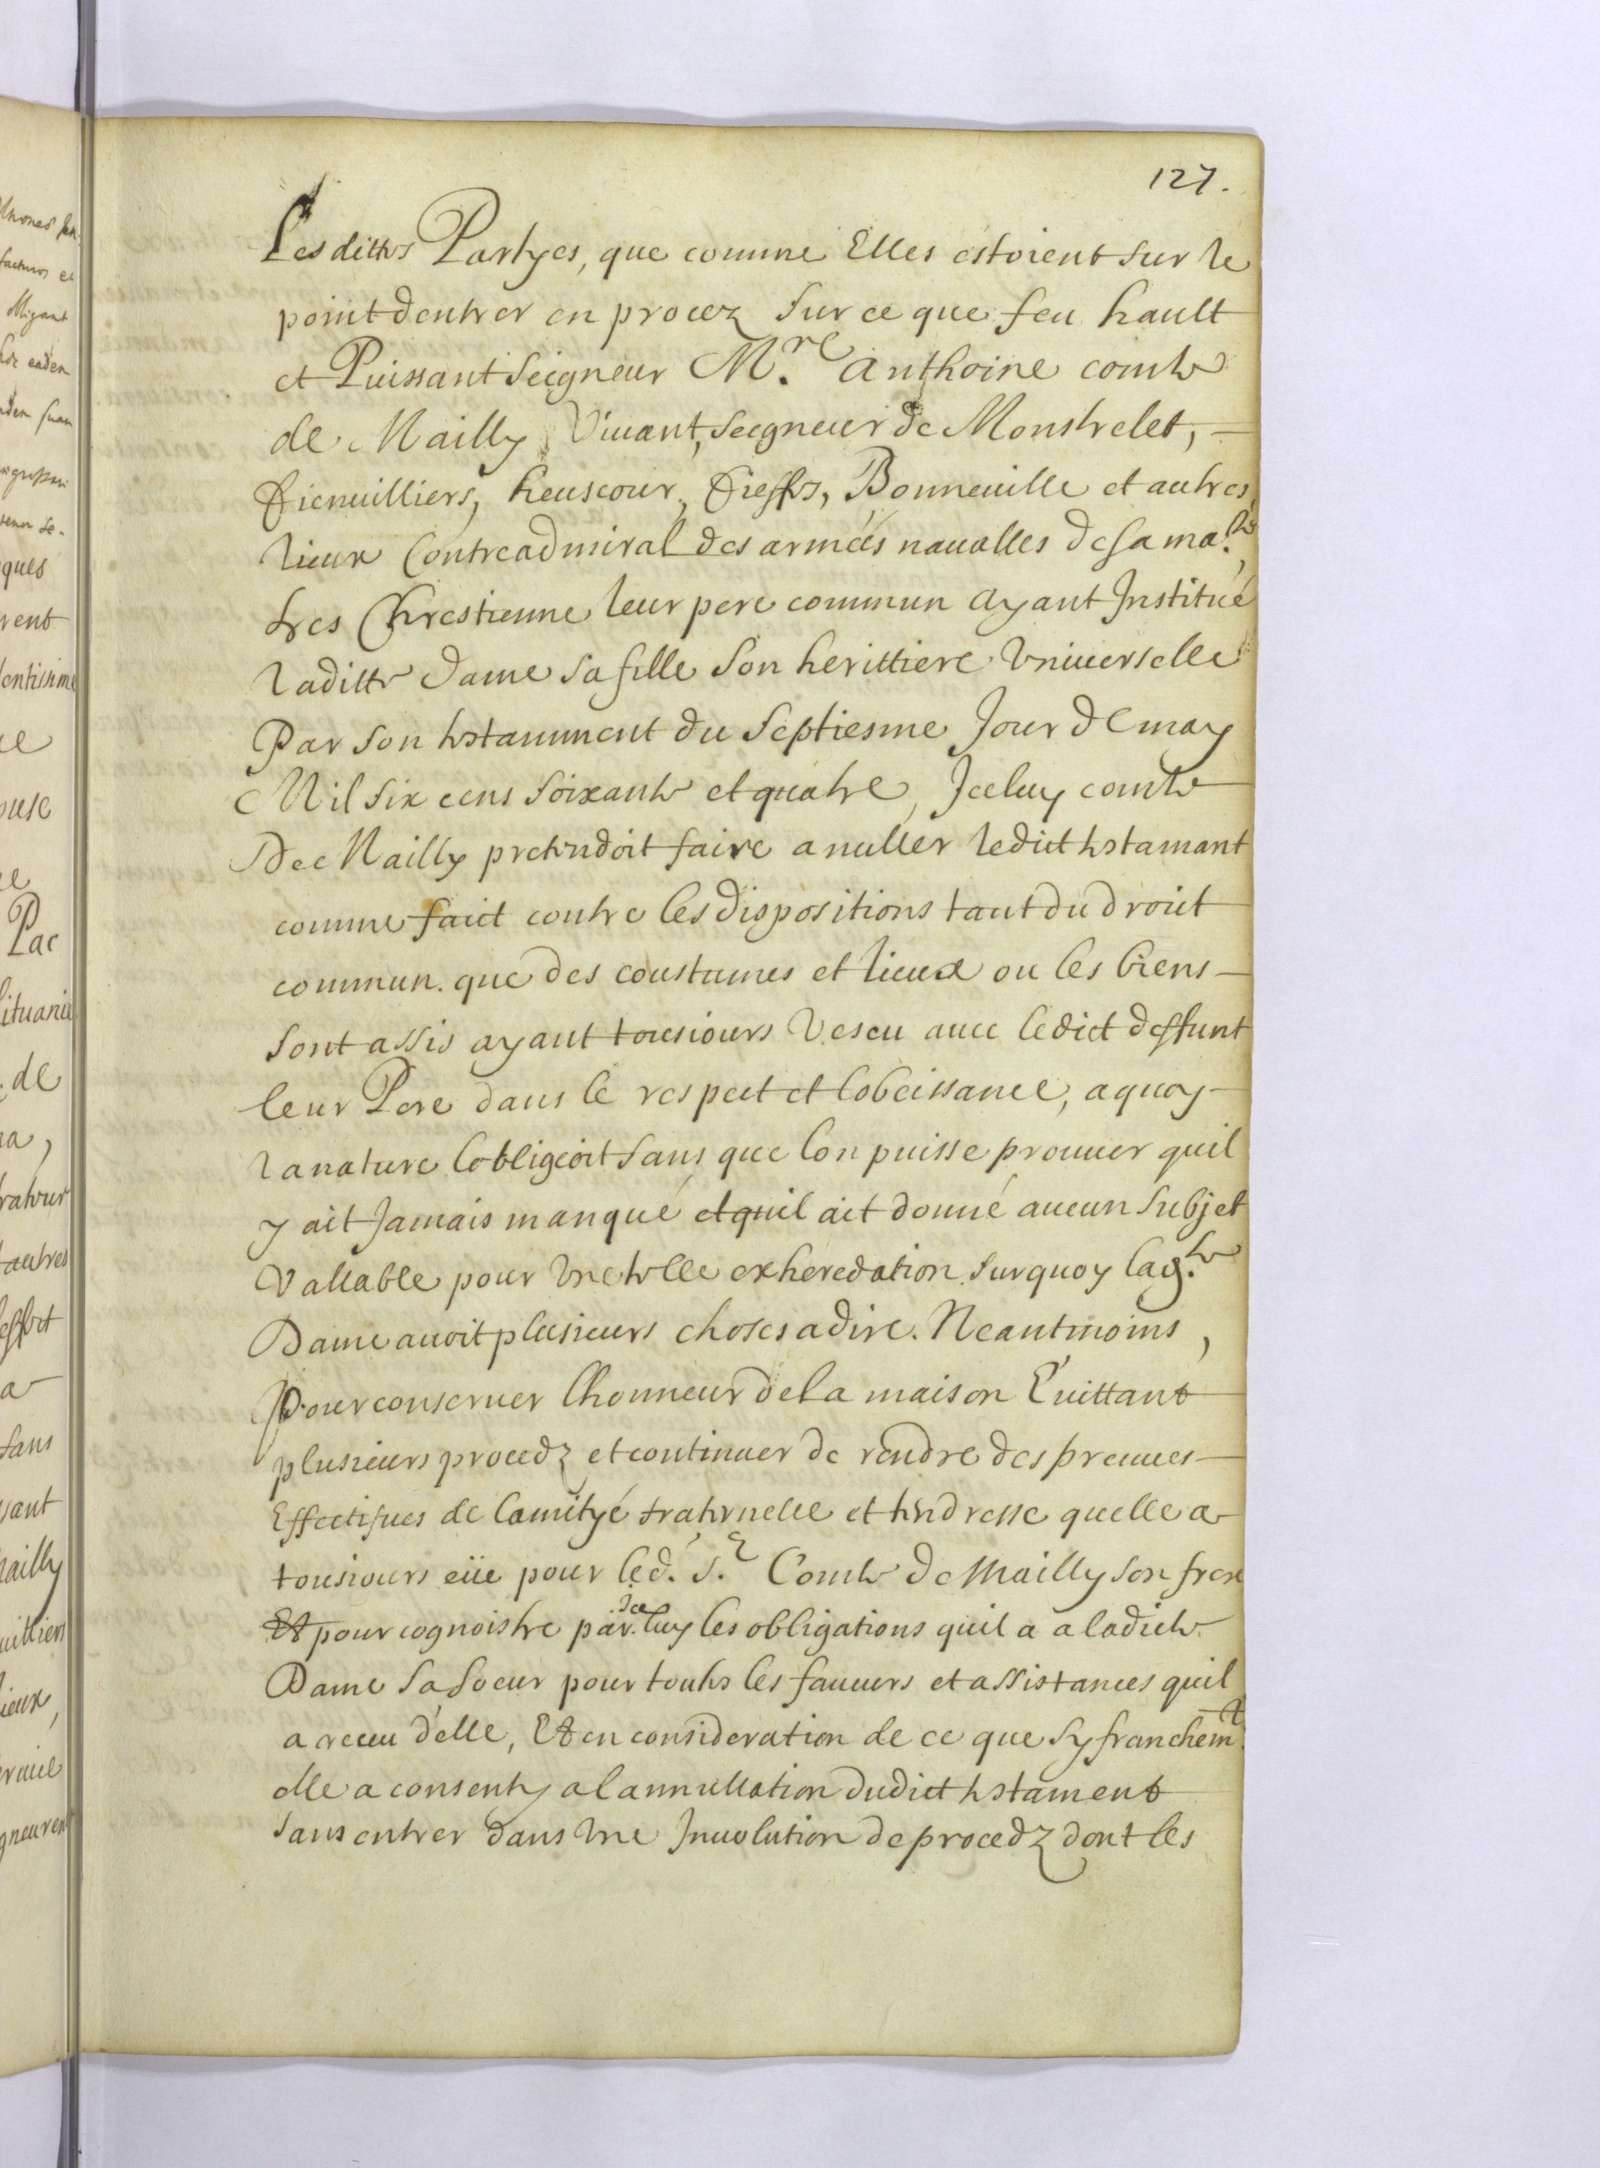 127.
Les dittes Partyes, que comme Elles estoient sur le
point dentrer en procez sur ce que feu hault
et Puissant Seigneur M.re Anthoine comte
de Mailly Viuant, Seigneur de Monstrelet,
Fienuilliers, heuscour, Fieffes, Bonneuille et autres
lieux Contreadmiral des armées naualles de sa ma.te
tres Chrestienne leur pere commun ayant Institué
laditte dame sa fille son herittiere Vniuerselle
Par son testamment du Septiesme Jour de may
Mil six cens soixante et quatre, Iceluy comte
De Mailly pretendoit faire anuller ledict testamant
comme faict contre les dispositions tant du droict
commun. que des coustumes et lieux ou les biens
sont assis ayant tousiours Vescu auec ledict deffunt
leur Pere dans le respect et lobeissance, a quoy
la nature lobligeoit sans que lon puisse prouuer quil
y ait Jamais manqué et quil ait donné aucun Subjet
Vallable pour Vne telle exheredation. surquoy lad.te
Dame auoit plusieurs choses a dire. Neantmoins,
Pour conseruer lhonneur de la maison Euittant
plusieurs procedz et continuer de rendre des preuues
Effectifues de lamityé fraternelle et tendresse quelle a
tousiours eüe pour led. S.r Comte de Mailly son frere
Et pour cognoistre par Iceluy les obligations quil a a ladicte
Dame sa soeur pour toutes les faueurs et assistances quil
a receu d'elle, Et en consideration de ce que sy franchem.t
elle a consenty a lannullation dudict testament
sans entrer dans Vne Inuolution de procedz dont les
ques
rent
dentissime
Pac
lituanie
de
autres
sans
lieux,